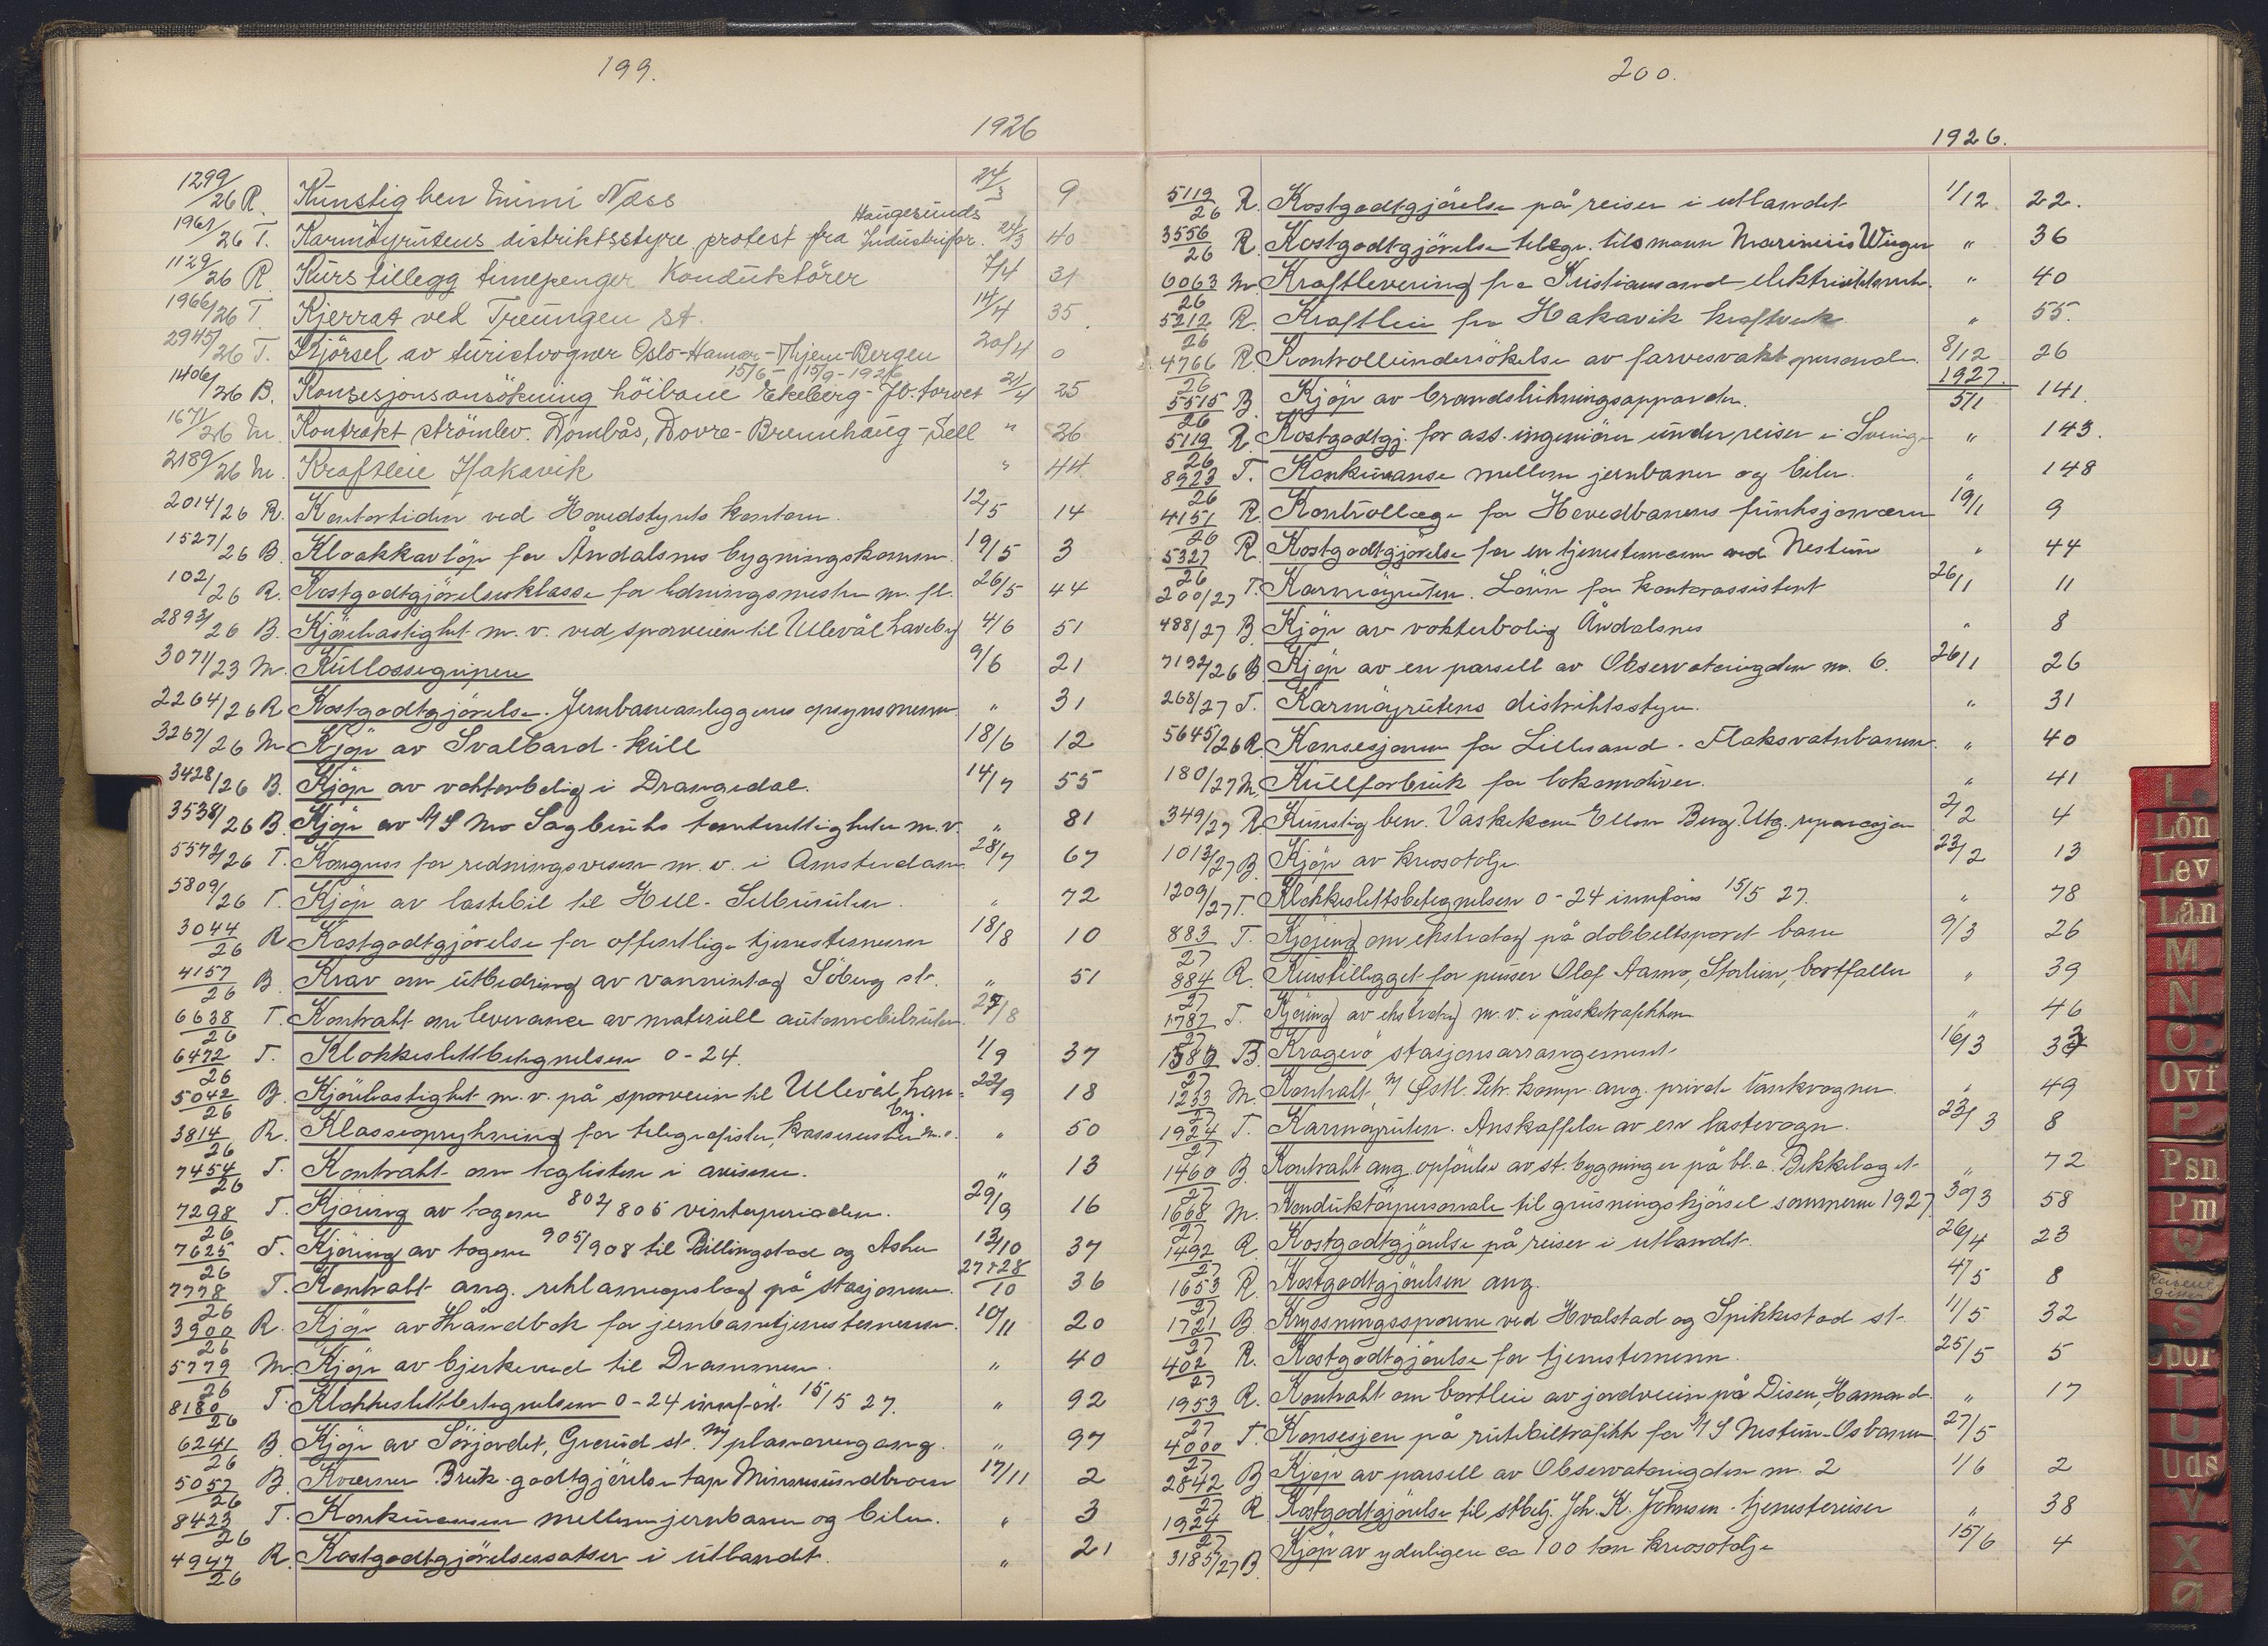 199.
1926
1299/26 R. Kunstig ben Mimi Næss 24/3 9
1961/26 T. Karmöyrutens distriktsstyre protest fra Haugesunds Industrifor. 24/3 40
1129/26 R. Kurstillegg timepenger Konduktörer 7/4 31
1966/26 T. Kjerrat ved Treungen st. 14/4 35
2945/26 T. Kjörsel av turistvogner Oslo-Hamar-Tyin-Bergen 20/4 0
15/6 - 15/9 - 1926
1406/26 B. Konsesjonsansökning höibane Ekeberg - Jb. torvet 21/4 25
1671/26 M. Kontrakt strömlev. Dombås, Dovre - Brennhaug - Sell " 26
2189/26 M. Kraftleie Hakavik " 44
2014/26 R. Kontortiden ved Hovedstyrets kontorer. 12/5 14
1527/26 B. Kloakkavlöp for Åndalsnes bygningskomm. 19/5 3
102/26 R. Kostgodtgjörelsesklasse for ledningsmestre m. fl. 26/5 44
2893/26 B. Kjörehastighet m. v. ved sporveien til Ullevål haveby 4/6 51
3071/23 M. Kullossegripere 9/6 21
2264/26 R. Kostgodtgjörelse. Jernbaneanleggenes opsynsmenn " 31
3267/26 M. Kjöp av Svalbard-kull 18/6 12
3428/26 B. Kjöp av vokterbolig i Drangedal. 14/7 55
3538/26 B. Kjöp av A/S Mo Sagbruks tomterettigheter m.v. " 81
5572/26 T. Kongress for redningsvesen m. v. i Amsterdam 28/7 67
5809/26 T. Kjöp av lastebil til Hell-Selburuten. " 72
3044/26 R. Kostgodtgjörelse for offentlige tjenestemenn 18/8 10
4157/26 B. Krav om utbedring av vanninntag Söberg st. " 51
6638/26 T. Kontrakt om leveranse av materiell automobilruter. 27/8
6472/26 T. Klokkeslettbetegnelsen 0-24. 1/9 37
5042/26 B. Kjörehastighet m. v. på sporveien til Ullevål haveby. 22/9 18
3814/26 R. Klasseoprykning for telegrafister, kassemestere m.v. " 50
7454/26 T. Kontrakt om toglisten i avisene. " 13
7298/26 T. Kjöring av togene 802/805 vinterperioden. 29/9 16
7625/26 T. Kjöring av togene 905/908 til Billingstad og Asker 13/10 37
7778/26 T. Kontrakt ang. reklameopslag på stasjonene. 27+28/10 36
3900/26 R. Kjöp av Håndbok for jernbanetjenestemenn. 10/11 20
5779/26 M. Kjöp av bjerkeved til Drammen. " 40
8180/26 T. Klokkeslettbetegnelsen 0-24 innföres 15/5 27. " 92
6241/26 B. Kjöp av Sörjordet, Grorud st. m/ planovergang. " 97
5057/26 B. Kværner Bruk godtgjörelse tap Minnesundbroen 17/11 2
8423/26 T. Konkurransen mellem jernbaner og biler. " 3
4947/26 R. Kostgodtgjörelsessatser i utlandet. " 21
200.
1926.
5119/26 R. Kostgodtgjörelse på reiser i utlandet 1/12 22.
3556/26 R. Kostgodtgjörelse telegr. tilsmann Marinius Wiger " 36
6063/26 M. Kraftlevering fra Kristiansand elektrisitetsverk. " 40
5212/26 R. Kraftleie fra Hakavik kraftverk " 55.
4766/26 R. Kontrollundersökelse av farvesvakt personale. 8/12 26
1927
5515/26 B. Kjöp av brandslukningsapparater. 5/1 141.
5119/26 R. Kostgodtgj. for ass. ingeniörer under reiser i Sverige " 143.
8923/26 T. Konkurranse mellem jernbaner og biler. " 148
4151/26 R. Kontrollæge for Hovedbanens funksjonærer 19/1 9
5327/26 R. Kostgodtgjörelse for en tjenestemann ved Nestun " 44
200/27 T. Karmöyruten. Lönn for kontorassistent 26/1 11
488/27 B. Kjöp av vokterbolig Åndalsnes " 8
7192/26 B. Kjöp av en parsell av Observatoriegden nr. 6. 26/1 26
268/27 T. Karmöyrutens distriktsstyre. " 31
5645/26 R. Konsesjonen for Lillesand-Flaksvatnbanen. " 40
180/27 M. Kullforbruk for lokomotiver. " 41
349/27 R. Kunstig ben. Vaskekone Ellen Berg. Utg. reparasjon 2/2 4
1013/27 B. Kjöp av kreosotolje. 23/2 13
1209/27 T. Klokkeslettsbetegnelsen 0-24 innföres 15/5 27. " 78
883/27 T. Kjöring om ekstratog på dobbeltsporet bane 9/3 26
884/27 R. Kurstillegget for pusser Olof Aamo, Storlien, bortfaller " 39
1787/27 T. Kjöring av ekstratog m. v. i påsketrafikken " 46
1580/27 B. Kragerö stasjonsarrangement. 16/3 32
1233/27 M. Kontrakt m/ Østl. Petr. komp. ang. private tankvogner. " 49
1924/27 T. Karmöyruten. Anskaffelse av en lastevogn. 23/3 8
1460/27 B. Kontrakt ang. opförelse av st. bygninger på bl.a. Bekkelaget " 72
1668/27 M. Konduktörpersonale til grusningskjörsel sommeren 1927. 30/3 58
1492/27 R. Kostgodtgjörelse på reiser i utlandet. 26/4 23
1653/27 R. Kostgodtgjörelsen ang. 4/5 8
1721/27 B. Kryssningssporene ved Hvalstad og Spikkestad st. 11/5 32
402/27 R. Kostgodtgjörelse for tjenestemenn. 25/5 5
1953/27 R. Kontrakt om bortleie av jordveien på Disen, Hamar d. " 17
4000/27 T. Konsesjon på rutebiltrafikk for A/S Nestun-Osbanen. 27/5
2842/27 B. Kjöp av parsell av Observatoriegden nr. 2 1/6 2
1924/27 R. Kostgodtgjörelse til stbetj. Joh. K. Johnsen - tjenestereiser " 38
3185/27 B. Kjöp av yderligere ca 100 ton kreosotolje 15/6 4
L.
Lön
Lev
Lan
M
N
O.
Ovf
P
Psn
Pm
Q
S
Spor
T
U
Uds
V
X
Ø